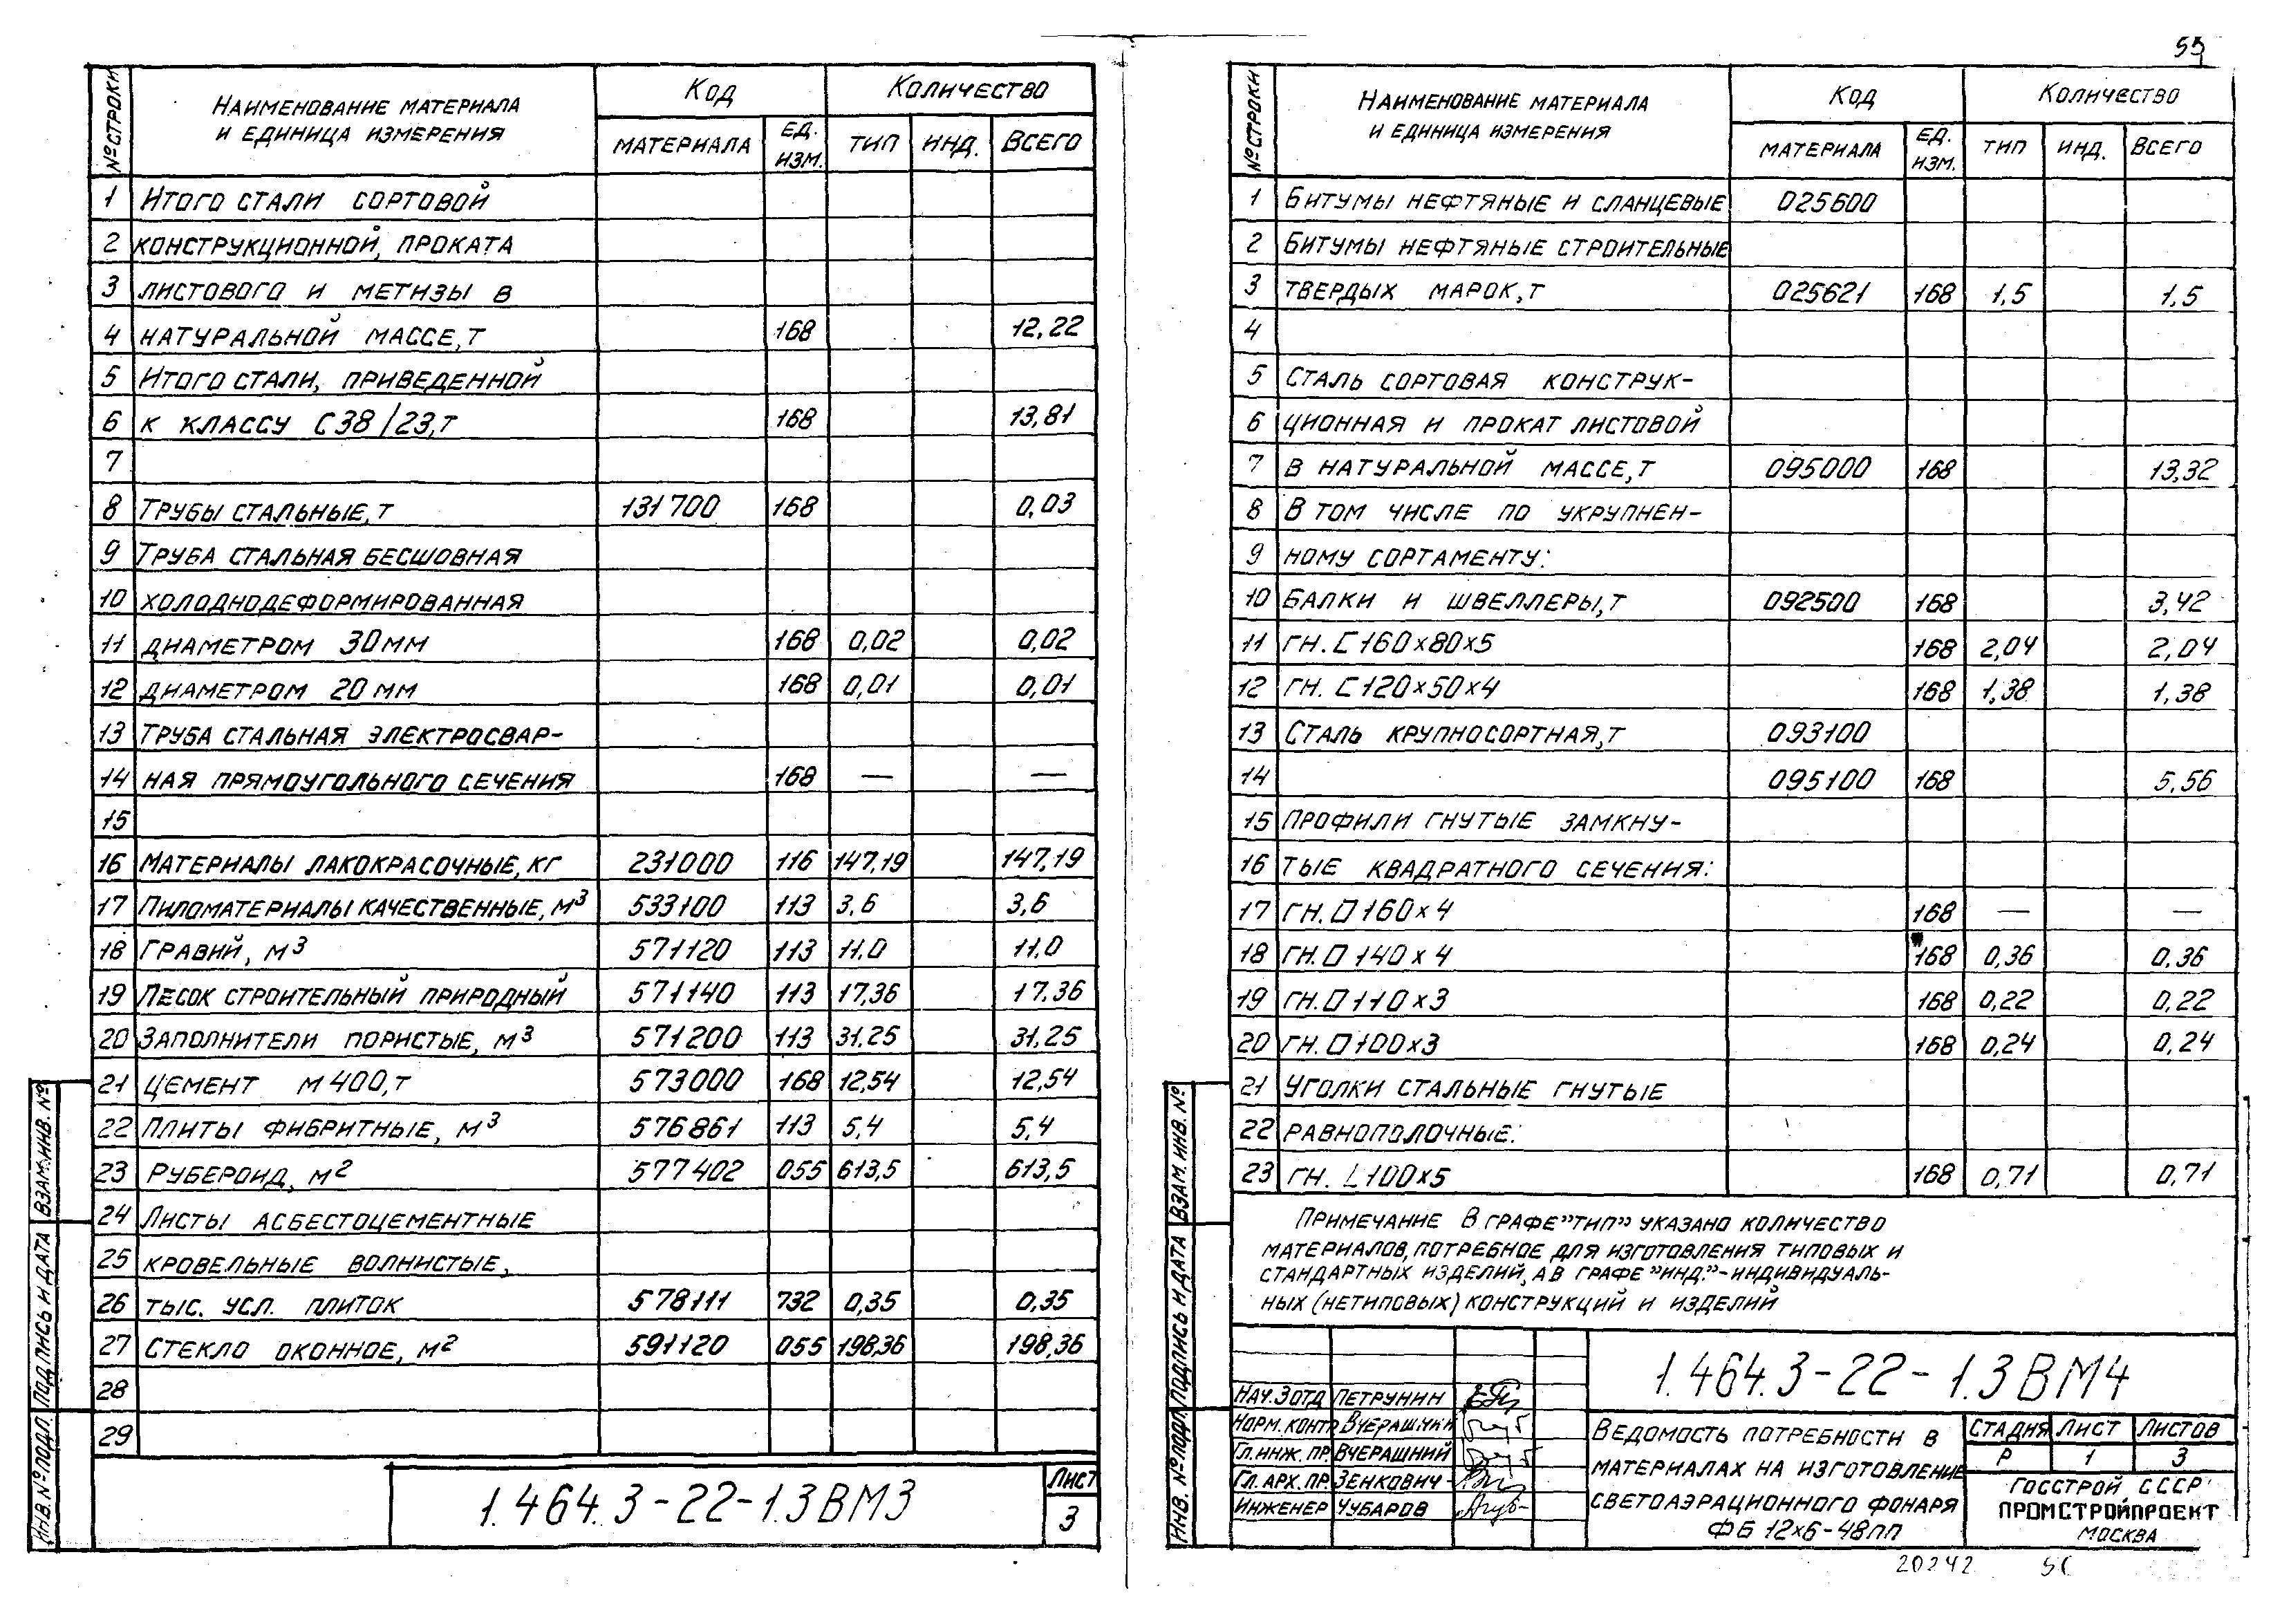 55
№ СТРОКИ | НАИМЕНОВАНИЕ МАТЕРИАЛА И ЕДИНИЦА ИЗМЕРЕНИЯ | КОД | КОЛИЧЕСТВО
МАТЕРИАЛА | ЕД. ИЗМ. | ТИП | ИНД. | ВСЕГО
1 ИТОГО СТАЛИ СОРТОВОЙ
2 КОНСТРУКЦИОННОЙ, ПРОКАТА
3 ЛИСТОВОГО И МЕТИЗЫ В
4 НАТУРАЛЬНОЙ МАССЕ, Т 168 12,22
5 ИТОГО СТАЛИ, ПРИВЕДЕННОЙ
6 К КЛАССУ С 38/23, Т 168 13,81
7
8 ТРУБЫ СТАЛЬНЫЕ, Т 131700 168 0,03
9 ТРУБА СТАЛЬНАЯ БЕСШОВНАЯ
10 ХОЛОДНОДЕФОРМИРОВАННАЯ
11 ДИАМЕТРОМ 30 ММ 168 0,02 0,02
12 ДИАМЕТРОМ 20 ММ 168 0,01 0,01
13 ТРУБА СТАЛЬНАЯ ЭЛЕКТРОСВАР-
14 НАЯ ПРЯМОУГОЛЬНОГО СЕЧЕНИЯ 168 — —
15
16 МАТЕРИАЛЫ ЛАКОКРАСОЧНЫЕ, КГ 231000 116 147,19 147,19
17 ПИЛОМАТЕРИАЛЫ КАЧЕСТВЕННЫЕ, М³ 533100 113 3,6 3,6
18 ГРАВИЙ, М³ 571120 113 11.0 11.0
19 ПЕСОК СТРОИТЕЛЬНЫЙ ПРИРОДНЫЙ 571140 113 17,36 17.36
20 ЗАПОЛНИТЕЛИ ПОРИСТЫЕ, М³ 571200 113 31,25 31,25
21 ЦЕМЕНТ М400, Т 573000 168 12,54 12,54
22 ПЛИТЫ ФИБРИТНЫЕ, М³ 576861 113 5,4 5,4
23 РУБЕРОИД, М² 577402 055 613,5 613,5
24 ЛИСТЫ АСБЕСТОЦЕМЕНТНЫЕ
25 КРОВЕЛЬНЫЕ ВОЛНИСТЫЕ,
26 ТЫС. УСЛ. ПЛИТОК 578111 732 0,35 0,35
27 СТЕКЛО ОКОННОЕ, М² 591120 055 198,36 198,36
28
29
ИНВ. № ПОДЛ. ПОДПИСЬ И ДАТА ВЗАМ. ИНВ. №
1.464.3-22-1.3 ВМ3
ЛИСТ
3
№ СТРОКИ | НАИМЕНОВАНИЕ МАТЕРИАЛА И ЕДИНИЦА ИЗМЕРЕНИЯ | КОД | КОЛИЧЕСТВО
МАТЕРИАЛА | ЕД. ИЗМ. | ТИП | ИНД. | ВСЕГО
1 БИТУМЫ НЕФТЯНЫЕ И СЛАНЦЕВЫЕ 025600
2 БИТУМЫ НЕФТЯНЫЕ СТРОИТЕЛЬНЫЕ
3 ТВЕРДЫХ МАРОК, Т 025621 168 1,5 1,5
4
5 СТАЛЬ СОРТОВАЯ КОНСТРУК-
6 ЦИОННАЯ И ПРОКАТ ЛИСТОВОЙ
7 В НАТУРАЛЬНОЙ МАССЕ, Т 095000 168 13,32
8 В ТОМ ЧИСЛЕ ПО УКРУПНЕН-
9 НОМУ СОРТАМЕНТУ:
10 БАЛКИ И ШВЕЛЛЕРЫ, Т 092500 168 3,42
11 ГН. [ 160×80×5 168 2,04 2,04
12 ГН. [ 120×50×4 168 1,38 1,38
13 СТАЛЬ КРУПНОСОРТНАЯ, Т 093100
14 095100 168 5,56
15 ПРОФИЛИ ГНУТЫЕ ЗАМКНУ-
16 ТЫЕ КВАДРАТНОГО СЕЧЕНИЯ:
17 ГН. □ 160×4 168 — —
18 ГН. □ 140×4 168 0,36 0,36
19 ГН. □ 110×3 168 0,22 0,22
20 ГН. □ 100×3 168 0,24 0,24
21 УГОЛКИ СТАЛЬНЫЕ ГНУТЫЕ
22 РАВНОПОЛОЧНЫЕ:
23 ГН. L 100×5 168 0,71 0,71
ПРИМЕЧАНИЕ В ГРАФЕ "ТИП" УКАЗАНО КОЛИЧЕСТВО
МАТЕРИАЛОВ, ПОТРЕБНОЕ ДЛЯ ИЗГОТОВЛЕНИЯ ТИПОВЫХ И
СТАНДАРТНЫХ ИЗДЕЛИЙ, А В ГРАФЕ "ИНД." - ИНДИВИДУАЛЬ-
НЫХ (НЕТИПОВЫХ) КОНСТРУКЦИЙ И ИЗДЕЛИЙ
ИНВ. № ПОДЛ. ПОДПИСЬ И ДАТА ВЗАМ. ИНВ. №
НАЧ. ЗОТД ПЕТРУНИН
НОРМ. КОНТР ВЧЕРАШНИЙ
ГЛ. ИНЖ. ПР. ВЧЕРАШНИЙ
ГЛ. АРХ. ПР. ЗЕНКОВИЧ
ИНЖЕНЕР ЧУБАРОВ
1.464.3-22-1.3 ВМ4
ВЕДОМОСТЬ ПОТРЕБНОСТИ В
МАТЕРИАЛАХ НА ИЗГОТОВЛЕНИЕ
СВЕТОАЭРАЦИОННОГО ФОНАРЯ
ФБ 12×6-48ПП
СТАДИЯ ЛИСТ ЛИСТОВ
Р 1 3
ГОССТРОЙ СССР
ПРОМСТРОЙПРОЕКТ
МОСКВА
20242